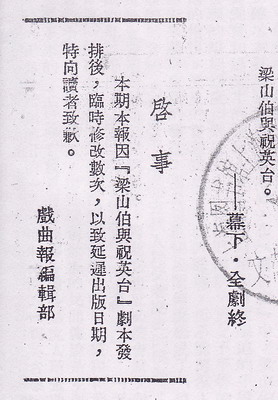 梁山伯與祝英台。
——幕下·全劇終
啓事
本期本報因『梁山伯與祝英台』劇本發
排後，臨時修改數次，以致延遲出版日期，
特向讀者致歉。
戲曲報編輯部